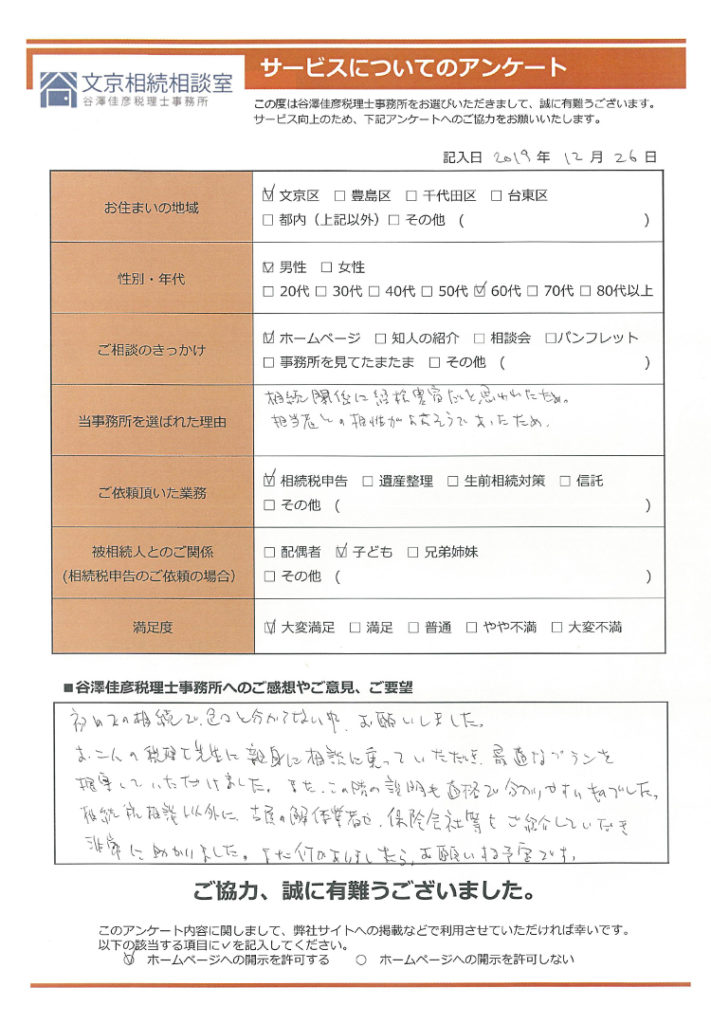 文京相続相談室
谷澤佳彦税理士事務所
サービスについてのアンケート
この度は谷澤佳彦税理士事務所をお選びいただきまして、誠に有難うございます。
サービス向上のため、下記アンケートへのご協力をお願いいたします。
記入日 2019 年 12 月 26 日
お住まいの地域
☑ 文京区 □ 豊島区 □ 千代田区 □ 台東区
□ 都内（上記以外）□ その他 （ ）
性別・年代
☑ 男性 □ 女性
□ 20代 □ 30代 □ 40代 □ 50代 ☑ 60代 □ 70代 □ 80代以上
ご相談のきっかけ
☑ ホームページ □ 知人の紹介 □ 相談会 □パンフレット
□ 事務所を見てたまたま □ その他 （ ）
当事務所を選ばれた理由
相続関係に経検豊富だと思われたため。
担当者との相性がよさそうであったため.
ご依頼頂いた業務
☑ 相続税申告 □ 遺産整理 □ 生前相続対策 □ 信託
□ その他 （ ）
被相続人とのご関係
(相続税申告のご依頼の場合）
□ 配偶者 ☑ 子ども □ 兄弟姉妹
□ その他 （ ）
満足度
☑ 大変満足 □ 満足 □ 普通 □ やや不満 □ 大変不満
■谷澤佳彦税理士事務所へのご感想やご意見、ご要望
初めての相続で、色々と分からない中、お願いしました。
お二人の税理士先生に親身に相談に乗っていただき、最適なプランを
指導していただけました。また、この際の説明も適格で分かりやすいものでした。
相続所相談以外に、の解体業者や、保険会社等もご紹介していただき
非常に助かりました。また何かありましたら、お願いする予定です。
ご協力、誠に有難うございました。
このアンケート内容に関しまして、弊社サイトへの掲載などで利用させていただければ幸いです。
以下の該当する項目に✓を記入してください。
☑ ホームページへの開示を許可する ○ ホームページへの開示を許可しない